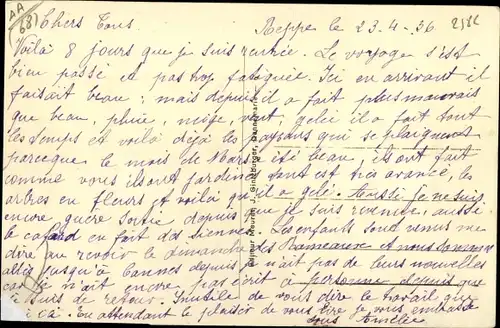 AA
68) Chers Tous Reppe le 23-4-36 2512
Voilà 8 jours que je suis rentrée. Le voyage s'est
bien passé et pas trop fatiguée. Ici en arrivant il
faisait beau; mais depuis il a fait plus mauvais
que beau, pluie, neige, vent, gelei il a fait tout
les temps et voilà déjà les paysans qui se plaignent
parceque le mois de Mars a été beau, ils ont fait
comme vous ils ont jardiné tout est très avancé, les
arbres en fleurs et voilà qu'il a gelé. Aussi je ne suis
encore guère sortie depuis que je suis revenue, aussi
le cafard en fait des siennes. Les enfants sont venus me
dire au revoir le dimanche des Rameaux et nous sommes
allés jusqu'à Cannes depuis n'ait pas de leurs nouvelles
car je n'ait encore pas écrit à personne depuis que
je suis de retour. Inutile de vous dire le travail que
j'ai ça. En attendant le plaisir de vous lire je vous embrasse
tous Amélie